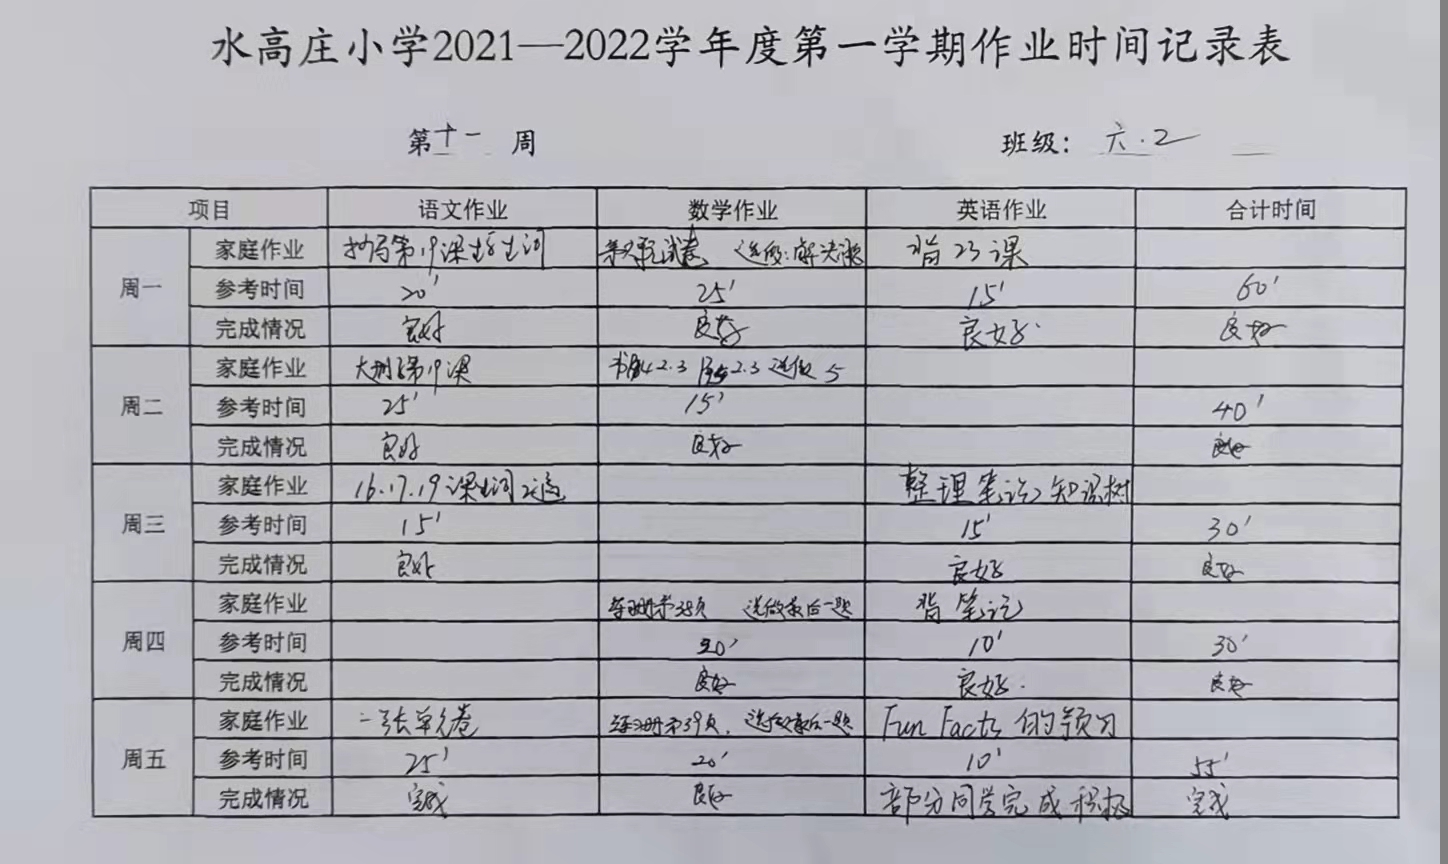 水高庄小学2021—2022学年度第一学期作业时间记录表
第十一周 班级：六.2
项目 语文作业 数学作业 英语作业 合计时间
周一 家庭作业 抄写第19课生字生词 试卷 选做:解决 背23课
参考时间 20' 25' 15' 60'
完成情况 良好 良好 良好. 良好
周二 家庭作业 第19课 42.3 2.3 选做 5
参考时间 25' 15' 40'
完成情况 良好 良好 良好
周三 家庭作业 16.17.19课生词2遍 整理笔记 知识树
参考时间 15' 15' 30'
完成情况 良好 良好 良好
周四 家庭作业 练习册第38页 选做最后一题 背笔记
参考时间 20' 10' 30'
完成情况 良好 良好. 良好
周五 家庭作业 一张单元卷 练习册第39页. 选做最后一题 Fun Facts 的预习
参考时间 25' 20' 10' 55'
完成情况 完成 良好 部分同学完成积极 完成